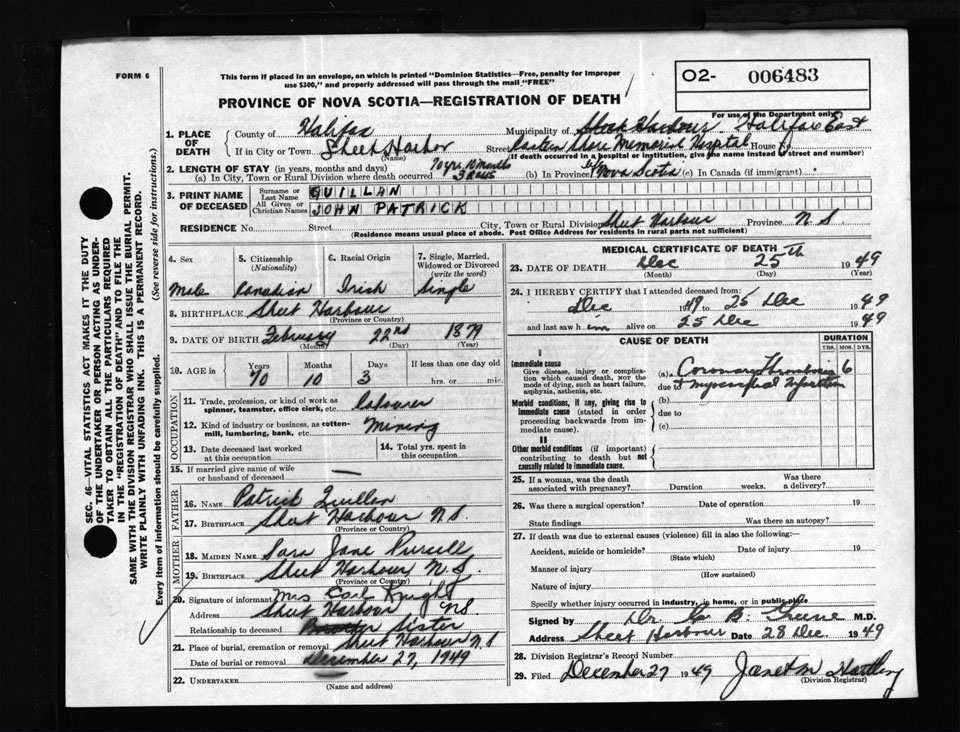 FORM 6
This form if placed in an envelope, on which is printed "Dominion Statistics—Free, penalty for improper
use $300," and properly addressed will pass through the mail "FREE"
PROVINCE OF NOVA SCOTIA—REGISTRATION OF DEATH
O2- 006483
For use of the Department only
1. PLACE OF DEATH County of Halifax Municipality of Sheet Harbour Halifax East
If in City or Town Sheet Harbor (Name) Street Eastern Shore Memorial Hospital House No
(If death occurred in a hospital or institution, give name instead of street and number)
2. LENGTH OF STAY (in years, months and days)
(a) In City, Town or Rural Division where death occurred 70 yrs. 10 months 3 days (b) In Province Nova Scotia (c) In Canada (if immigrant)
3. PRINT NAME OF DECEASED Surname or Last Name QUILLAN
All Given or Christian Names JOHN PATRICK
RESIDENCE No. Street City, Town or Rural Division Sheet Harbour Province N.S
(Residence means usual place of abode. Post Office Address for residents in rural parts not sufficient)
4. Sex Male
5. Citizenship (Nationality) Canadian
6. Racial Origin Irish
7. Single, Married, Widowed or Divorced (write the word) Single
8. BIRTHPLACE Sheet Harbour
(Province or Country)
9. DATE OF BIRTH February 22nd 1879
(Month) (Day) (Year)
10. AGE in Years 70 Months 10 Days 3 If less than one day old
hrs. or min.
OCCUPATION
11. Trade, profession, or kind of work as spinner, teamster, office clerk, etc. Labourer
12. Kind of industry or business, as cotton-mill, lumbering, bank, etc. Mining
13. Date deceased last worked at this occupation
14. Total yrs. spent in this occupation
15. If married give name of wife or husband of deceased —
FATHER
16. NAME Patrick Quillan
17. BIRTHPLACE Sheet Harbour N.S.
(Province or Country)
MOTHER
18. MAIDEN NAME Sara Jane Purcell
19. BIRTHPLACE Sheet Harbour N.S.
(Province or Country)
20. Signature of informant Mrs Carl Knight
Address Sheet Harbour NS.
Relationship to deceased Sister
21. Place of burial, cremation or removal Sheet Harbour N.S
Date of burial or removal December 27, 1949
22. UNDERTAKER
(Name and address)
MEDICAL CERTIFICATE OF DEATH
23. DATE OF DEATH Dec 25th 1949
(Month) (Day) (Year)
24. I HEREBY CERTIFY that I attended deceased from:
Dec 1949 to 25 Dec 1949
and last saw him alive on 25 Dec 1949
CAUSE OF DEATH
DURATION
YRS. MOS. DYS.
I
Immediate cause
Give disease, injury or complication which caused death, NOT the mode of dying, such as heart failure, asphyxia, asthenia, etc.
(a) Coronary Thrombosis 6
due to & myocardial infarction
Morbid conditions, if any, giving rise to immediate cause (stated in order proceeding backwards from immediate cause).
(b)
due to
(c)
II
Other morbid conditions (if important) contributing to death but not causally related to immediate cause.
25. If a woman, was the death associated with pregnancy? Duration weeks. Was there a delivery?
26. Was there a surgical operation? Date of operation 19
State findings Was there an autopsy?
27. If death was due to external causes (violence) fill in also the following:
Accident, suicide or homicide? Date of injury 19
(State which)
Manner of injury
(How sustained)
Nature of injury
Specify whether injury occurred in industry, in home, or in public place
Signed by Dr. B. Greene M.D.
Address Sheet Harbour Date 28 Dec 1949
28. Division Registrar's Record Number
29. Filed December 27 1949 Janet M Hartling
(Division Registrar)
SEC. 46—VITAL STATISTICS ACT MAKES IT THE DUTY
OF THE UNDERTAKER OR PERSON ACTING AS UNDER-
TAKER TO OBTAIN ALL THE PARTICULARS REQUIRED
IN THE "REGISTRATION OF DEATH" AND TO FILE THE
SAME WITH THE DIVISION REGISTRAR WHO SHALL ISSUE THE BURIAL PERMIT.
WRITE PLAINLY WITH UNFADING INK. THIS IS A PERMANENT RECORD.
Every item of information should be carefully supplied. (See reverse side for instructions.)